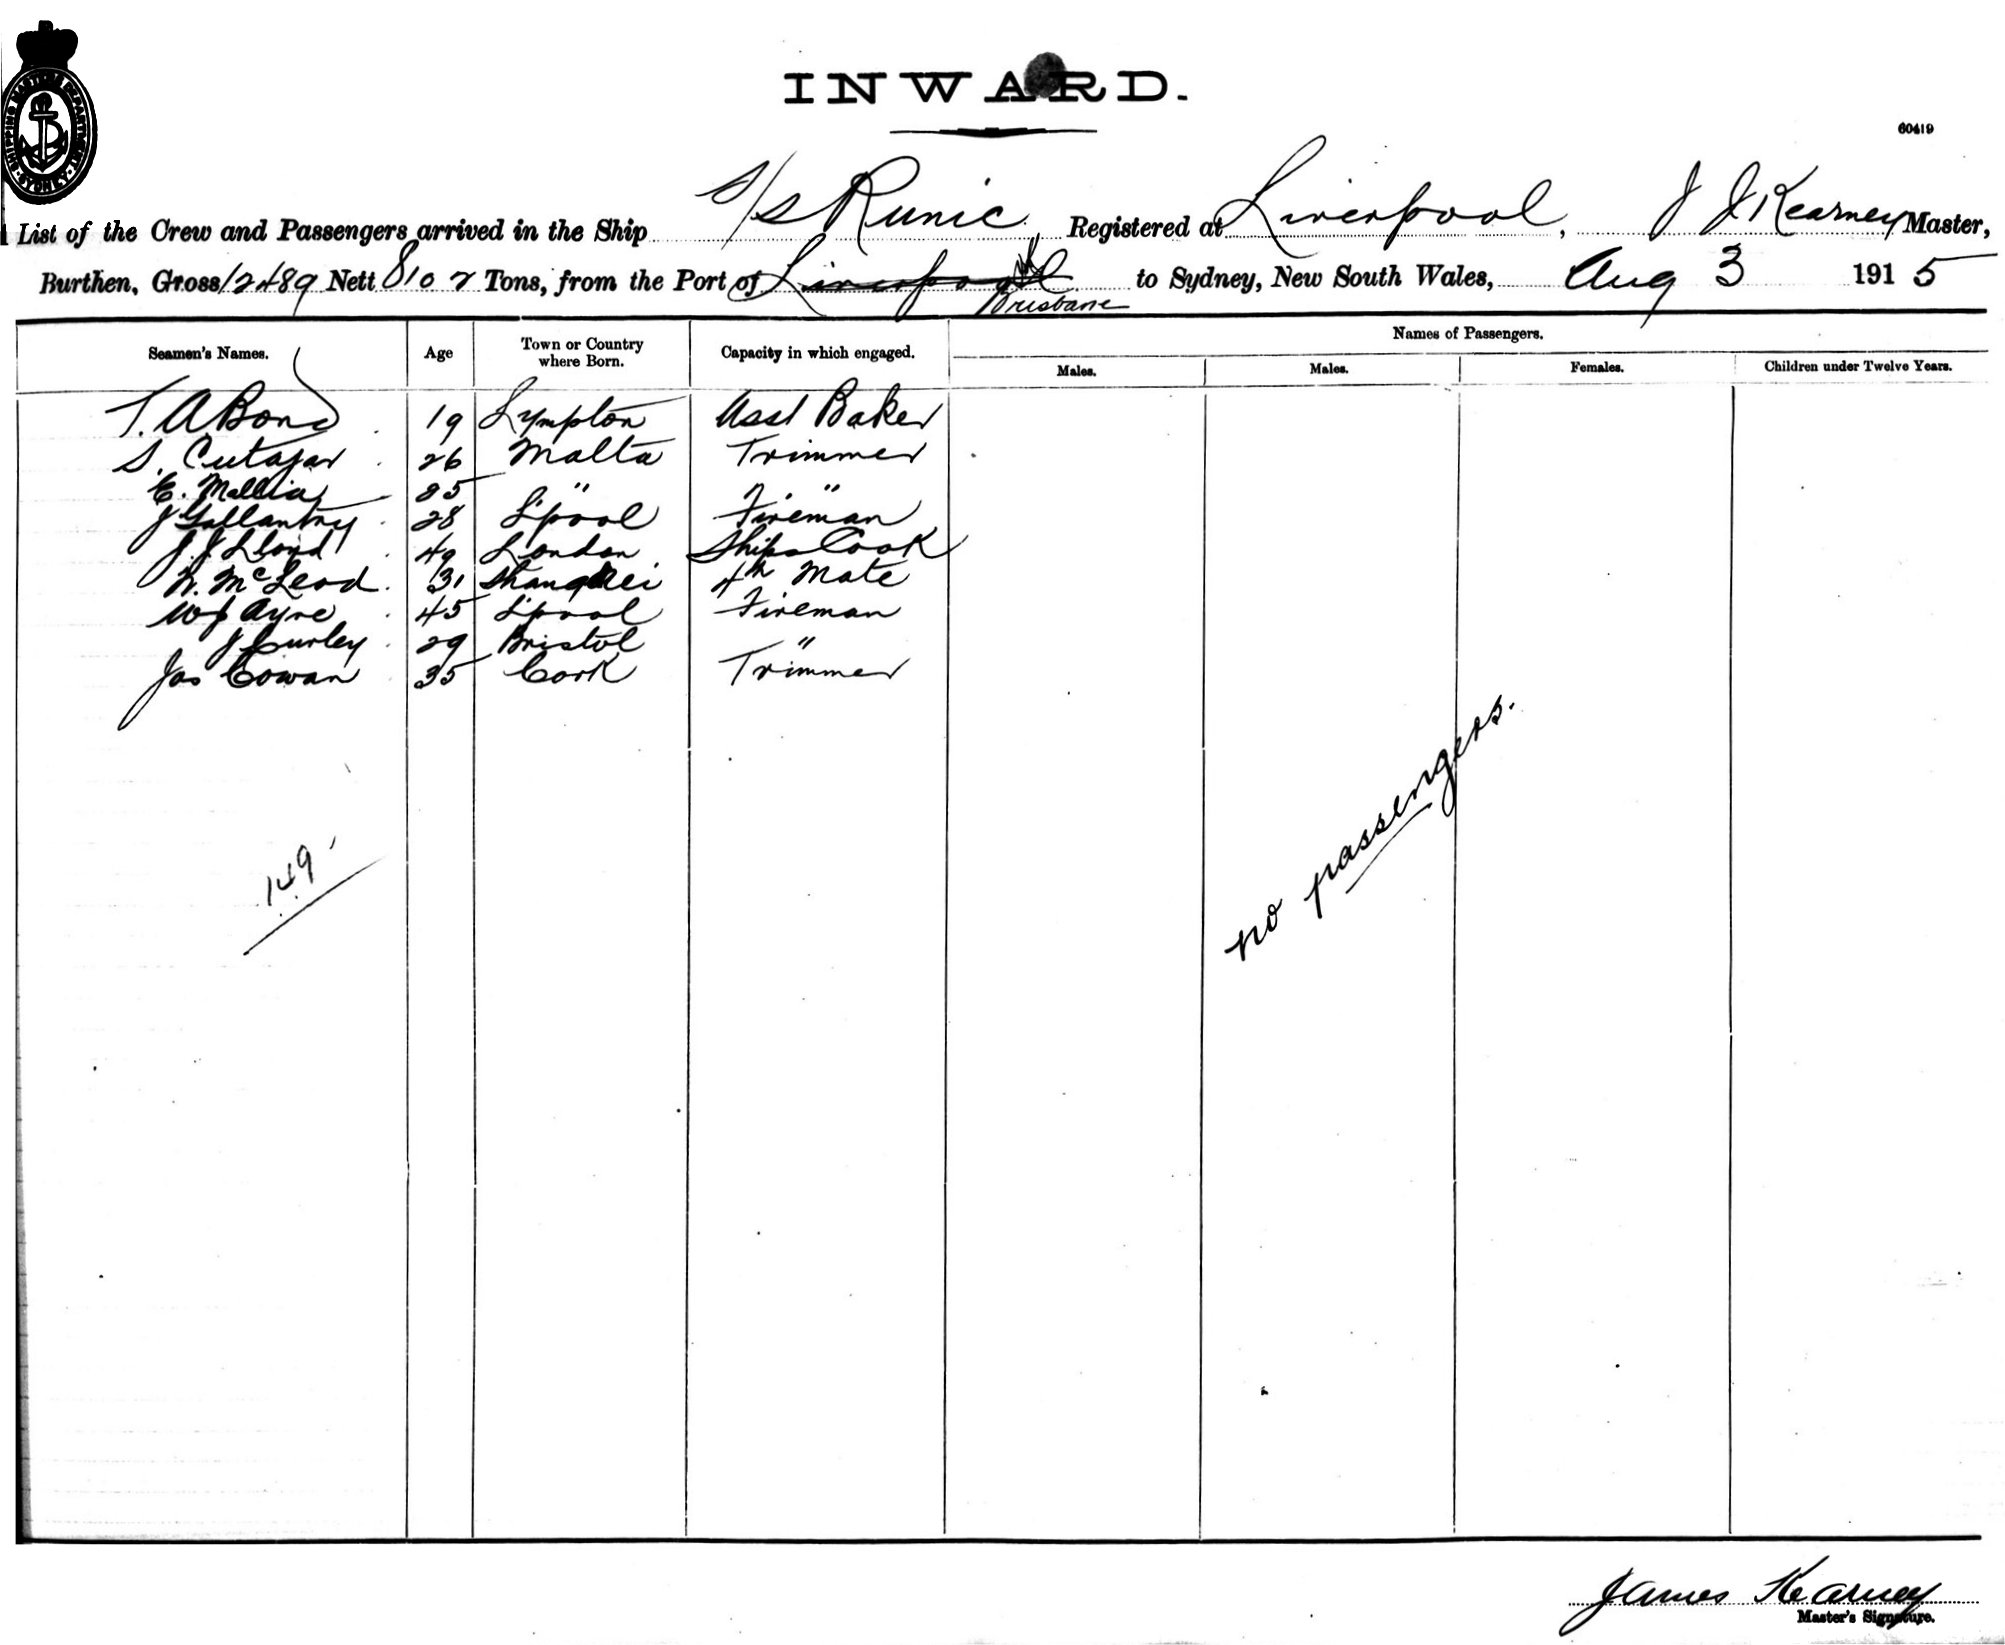 SHIPPING MASTERS DEPARTMENT · SYDNEY ·
INWARD.
60419
List of the Crew and Passengers arrived in the Ship S/S Runic Registered at Liverpool, J J Kearney Master,
Burthen, Gross 12489 Nett 8102 Tons, from the Port of Liverpool Brisbane to Sydney, New South Wales, Aug 3 1915
Seamen's Names. Age Town or Country where Born. Capacity in which engaged. Names of Passengers.
Males. Males. Females. Children under Twelve Years.
T. A Bond 19 Lympton Asst Baker
S. Cutajar 26 Malta Trimmer
E. Mallia 25 " "
J Gallantry 28 L'pool Fireman
J. J Lloyd 49 London Ships Cook
N. McLeod 31 Shanghei 4th Mate
W J Ayre 45 L'pool Fireman
J Curley 29 Bristol "
Jas Cowan 35 Cork Trimmer
149
no passengers.
James Kearney
Master's Signature.